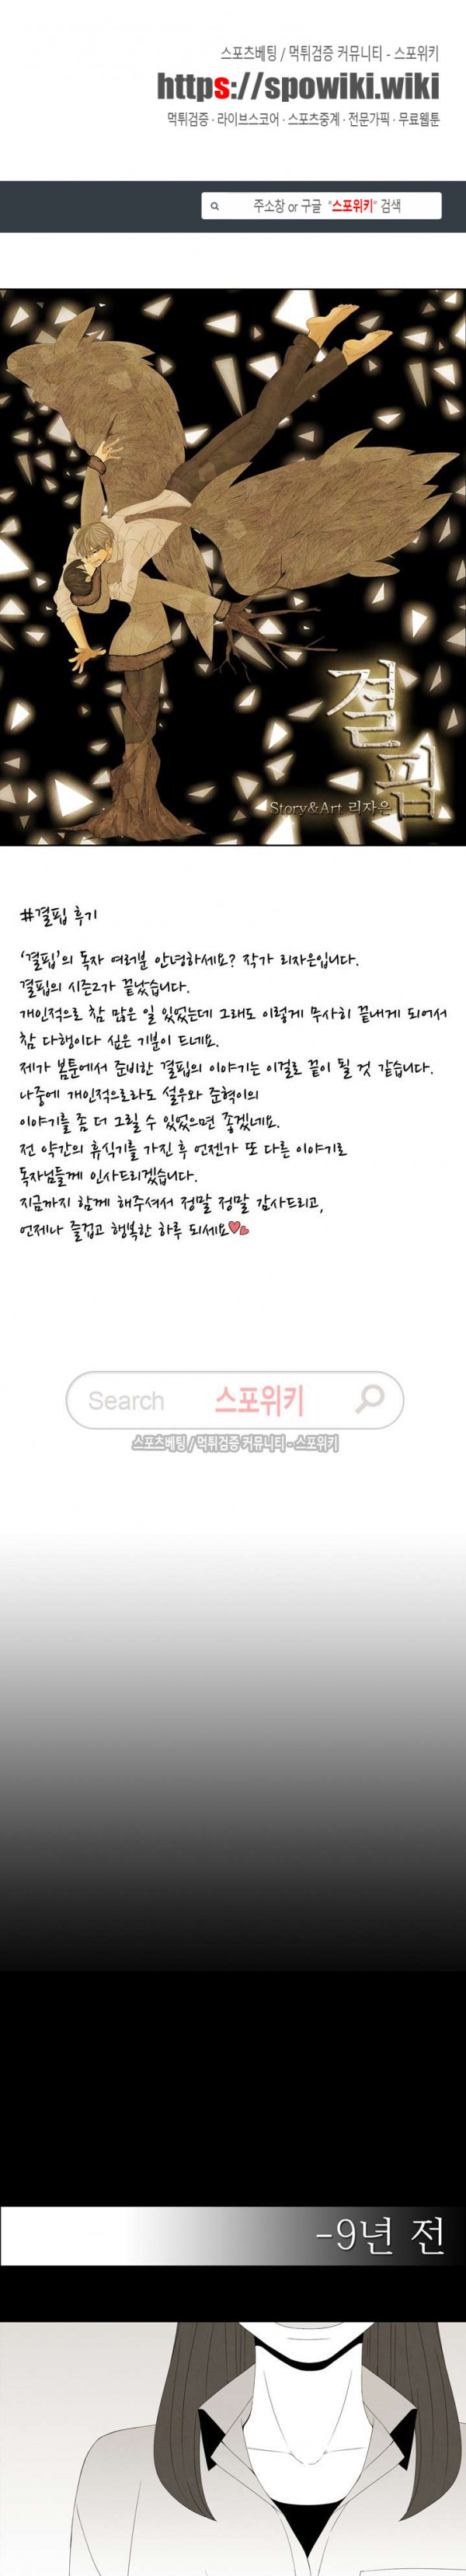 스포츠베팅 / 먹튀검증 커뮤니티 - 스포위키
https://spowiki.wiki
먹튀검증 · 라이브스코어 · 스포츠중계 · 전문가픽 · 무료웹툰
주소창 or 구글 "스포위키" 검색
결핍
Story&Art 리자은
#결핍 후기
'결핍'의 독자 여러분 안녕하세요? 작가 리자은입니다.
결핍의 시즌2가 끝났습니다.
개인적으로 참 많은 일 있었는데 그래도 이렇게 무사히 끝내게 되어서
참 다행이다 싶은 기분이 드네요.
제가 봄툰에서 준비한 결핍의 이야기는 이걸로 끝이 될 것 같습니다.
나중에 개인적으로라도 설우와 준혁이의
이야기를 좀 더 그릴 수 있었으면 좋겠네요.
전 약간의 휴식기를 가진 후 언젠가 또 다른 이야기로
독자님들께 인사드리겠습니다.
지금까지 함께 해주셔서 정말 정말 감사드리고,
언제나 즐겁고 행복한 하루 되세요
Search 스포위키
스포츠베팅 / 먹튀검증 커뮤니티 - 스포위키
-9년 전